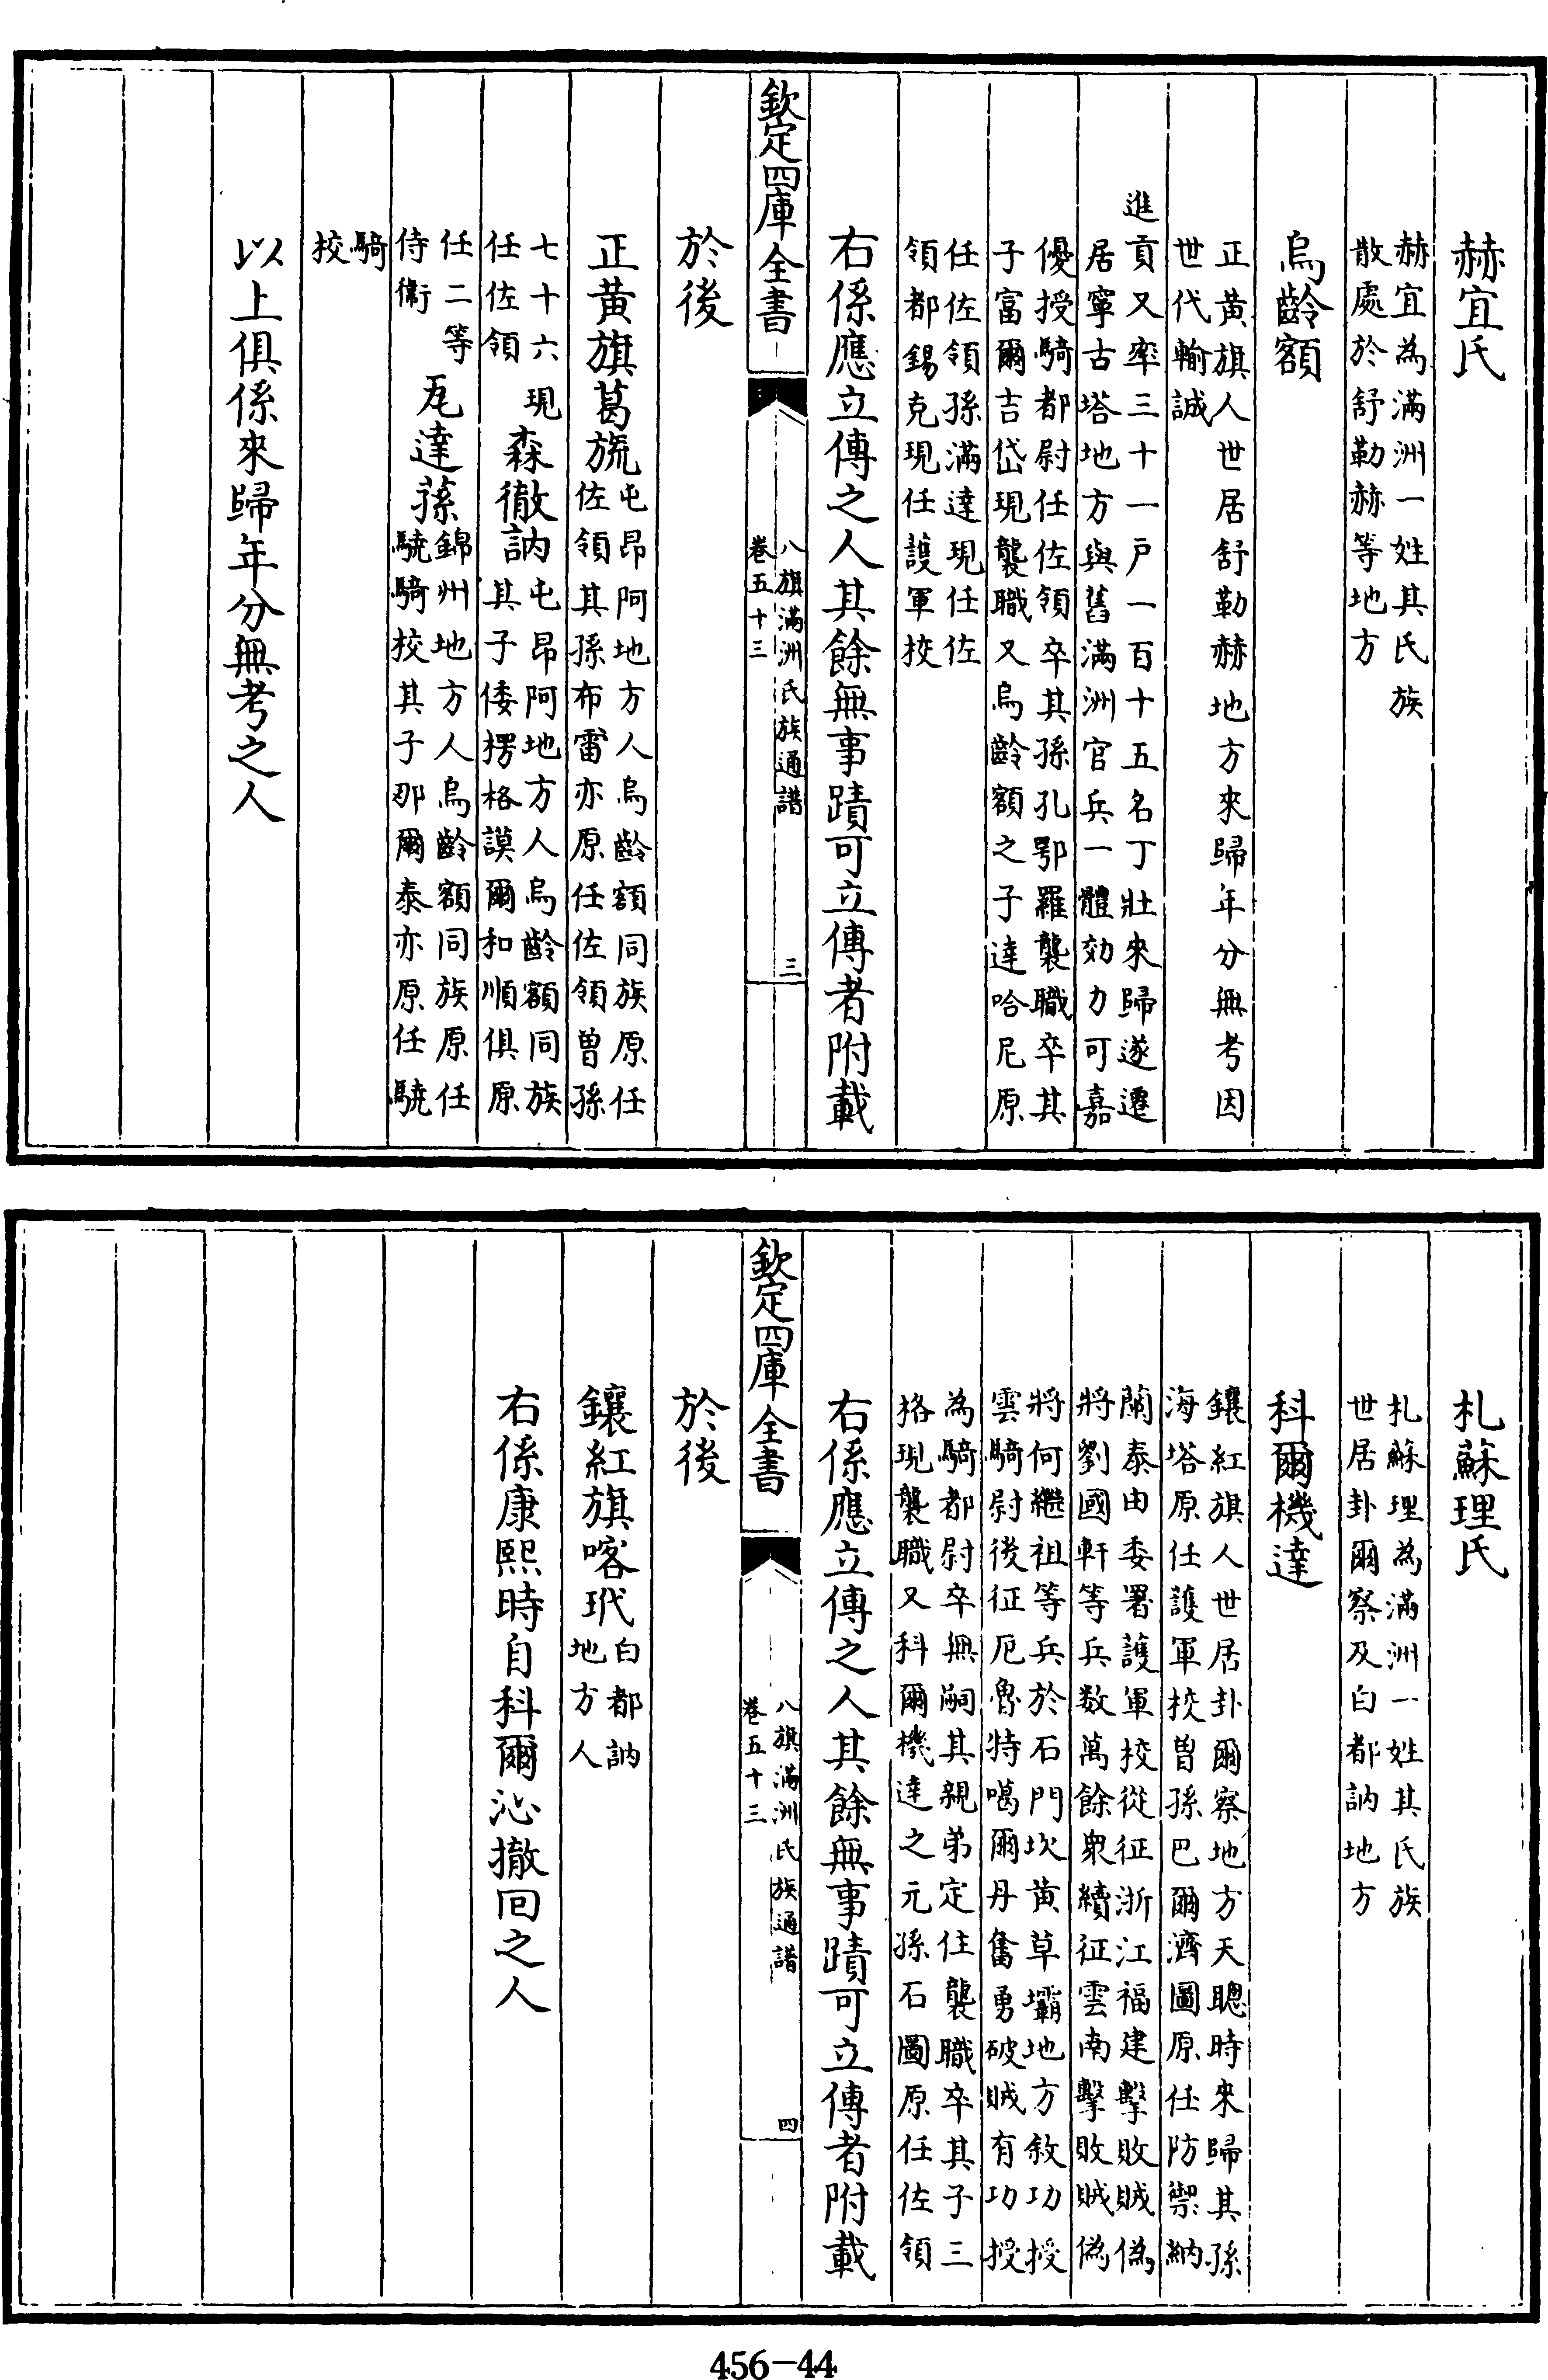 赫宜氏
赫宜為滿洲一姓其氏族
散處於舒勒赫等地方
烏齡額
正黃旗人世居舒勒赫地方來歸年分無考因
世代輸誠
進貢又率三十一戶一百十五名丁壯來歸遂遷
居寧古塔地方與舊滿洲官兵一體効力可嘉
優授騎都尉任佐領卒其孫孔鄂羅襲職卒其
子富爾吉岱現襲職又烏齡額之子達哈尼原
任佐領孫滿達現任佐
領都錫克現任護軍校
右係應立傳之人其餘無事蹟可立傳者附載
欽定四庫全書
八旗滿洲氏族通譜
卷五十三
三
於後
正黃旗葛旒
屯昂阿地方人烏齡額同族原任
佐領其孫布雷亦原任佐領曾孫
七十六現
任佐領
森徹訥
屯昂阿地方人烏齡額同族
其子倭楞格謨爾和順俱原
任二等
侍衛
瓦達蓀
錦州地方人烏齡額同族原任
驍騎校其子那爾泰亦原任驍
騎
校
以上俱係來歸年分無考之人
札蘇理氏
札蘇理為滿洲一姓其氏族
世居卦爾察及白都訥地方
科爾機達
鑲紅旗人世居卦爾察地方天聰時來歸其孫
海塔原任護軍校曾孫巴爾濟圖原任防禦納
蘭泰由委署護軍校從征浙江福建擊敗賊偽
將劉國軒等兵数萬餘衆續征雲南擊敗賊偽
將何繼祖等兵於石門坎黃草壩地方敘功授
雲騎尉後征厄魯特噶爾丹奮勇破賊有功授
為騎都尉卒無嗣其親弟定住襲職卒其子三
格現襲職又科爾機達之元孫石圖原任佐領
右係應立傳之人其餘無事蹟可立傳者附載
欽定四庫全書
八旗滿洲氏族通譜
卷五十三
四
於後
鑲紅旗喀玳
白都訥
地方人
右係康熙時自科爾沁撤回之人
456-44